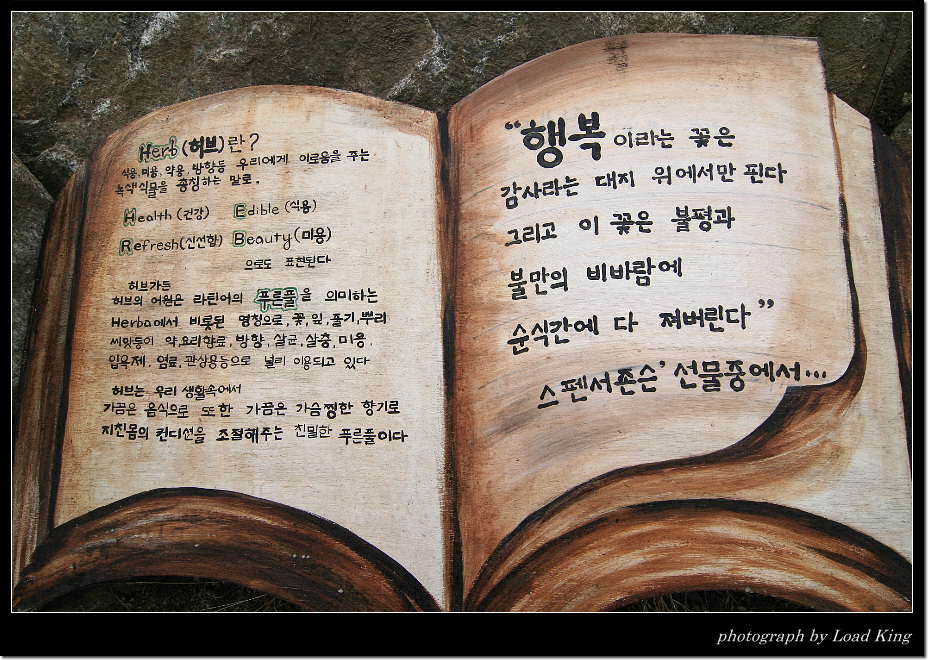 Herb (허브)란?
식용.미용.약용.방향등 우리에게 이로움을 주는
녹색식물을 총칭하는 말로.
Health (건강) Edible (식용)
Refresh(신선함) Beauty(미용)
으로도 표현된다
허브가든
허브의 어원은 라틴어의 푸른풀을 의미하는
Herba에서 비롯된 명칭으로,꽃,잎,줄기,뿌리
씨앗등이 약,요리향료,방향,살균,살충,미용.
입욕제.염료,관상용등으로 널리 이용되고 있다
허브는 우리 생활속에서
가끔은 음식으로 또한 가끔은 가슴찡한 향기로
지친몸의 컨디션을 조절해주는 친밀한 푸른풀이다
“행복이라는 꽃은
감사라는 대지 위에서만 핀다
그리고 이 꽃은 불평과
불만의 비바람에
순식간에 다 져버린다”
스펜서존슨’선물중에서...
photograph by Load King